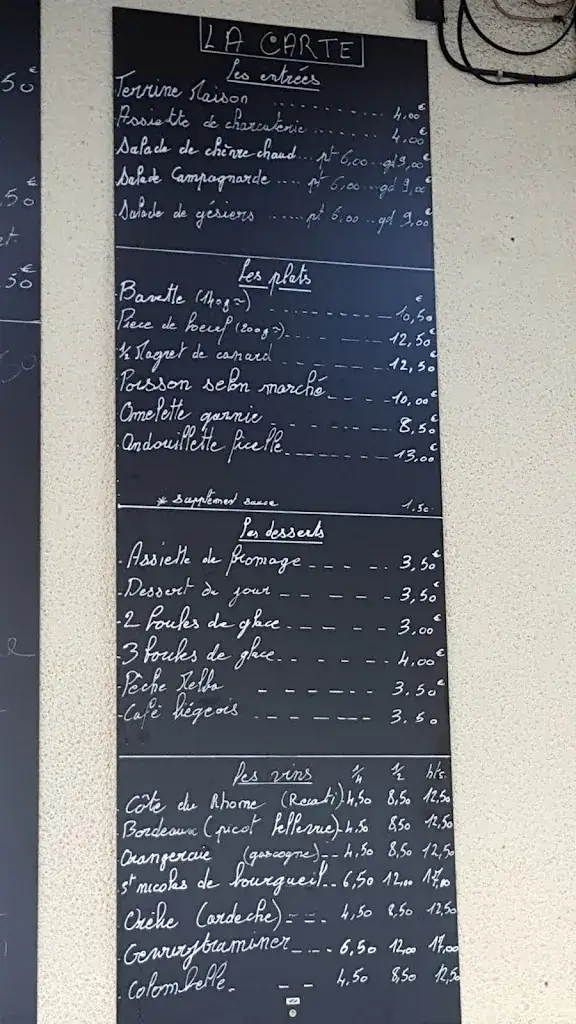 LA CARTE
Les entrées
Terrine Maison ........ 4,00€
Assiette de charcuterie ...... 4,00€
Salade de chèvre chaud... pt 6,00 .. gd 9,00€
Salade Campagnarde .... pt 6,00 ... gd 9,00€
Salade de gésiers ...... pt 6,00 .. gd 9,00€
Les plats
Bavette (140g ~) ------ 10,50€
Pièce de boeuf (200g ~) ---- 12,50€
1/2 Magret de canard ---- 12,50€
Poisson selon marché ---- 10,00€
Omelette garnie ----- 8,50€
Andouillette ficelle ------ 13,00€
* Supplément sauce 1.50
Les desserts
- Assiette de fromage ---- 3,50€
- Dessert du jour ----- 3,50€
- 2 boules de glace ---- 3,00€
- 3 boules de glace ----- 4,00€
- Pêche Melba ------ 3.50€
- Café liégeois ------ 3.50
Les vins 1/4 1/2 bts.
Côte du Rhone 4,50 8,50 12,50
Bordeaux (picot bellevue) 4.50 8,50 12,50
Orangeraie (gascogne) -- 4.50 8,50 12,50
St nicolas de bourgueil .. 6,50 12,00 17,00
(ardeche) --- 4,50 8,50 12,50
Gewurztraminer --- 6,50 12,00 17,00
- Colombelle - -- 4,50 8,50 12,50
50€
50€
50€